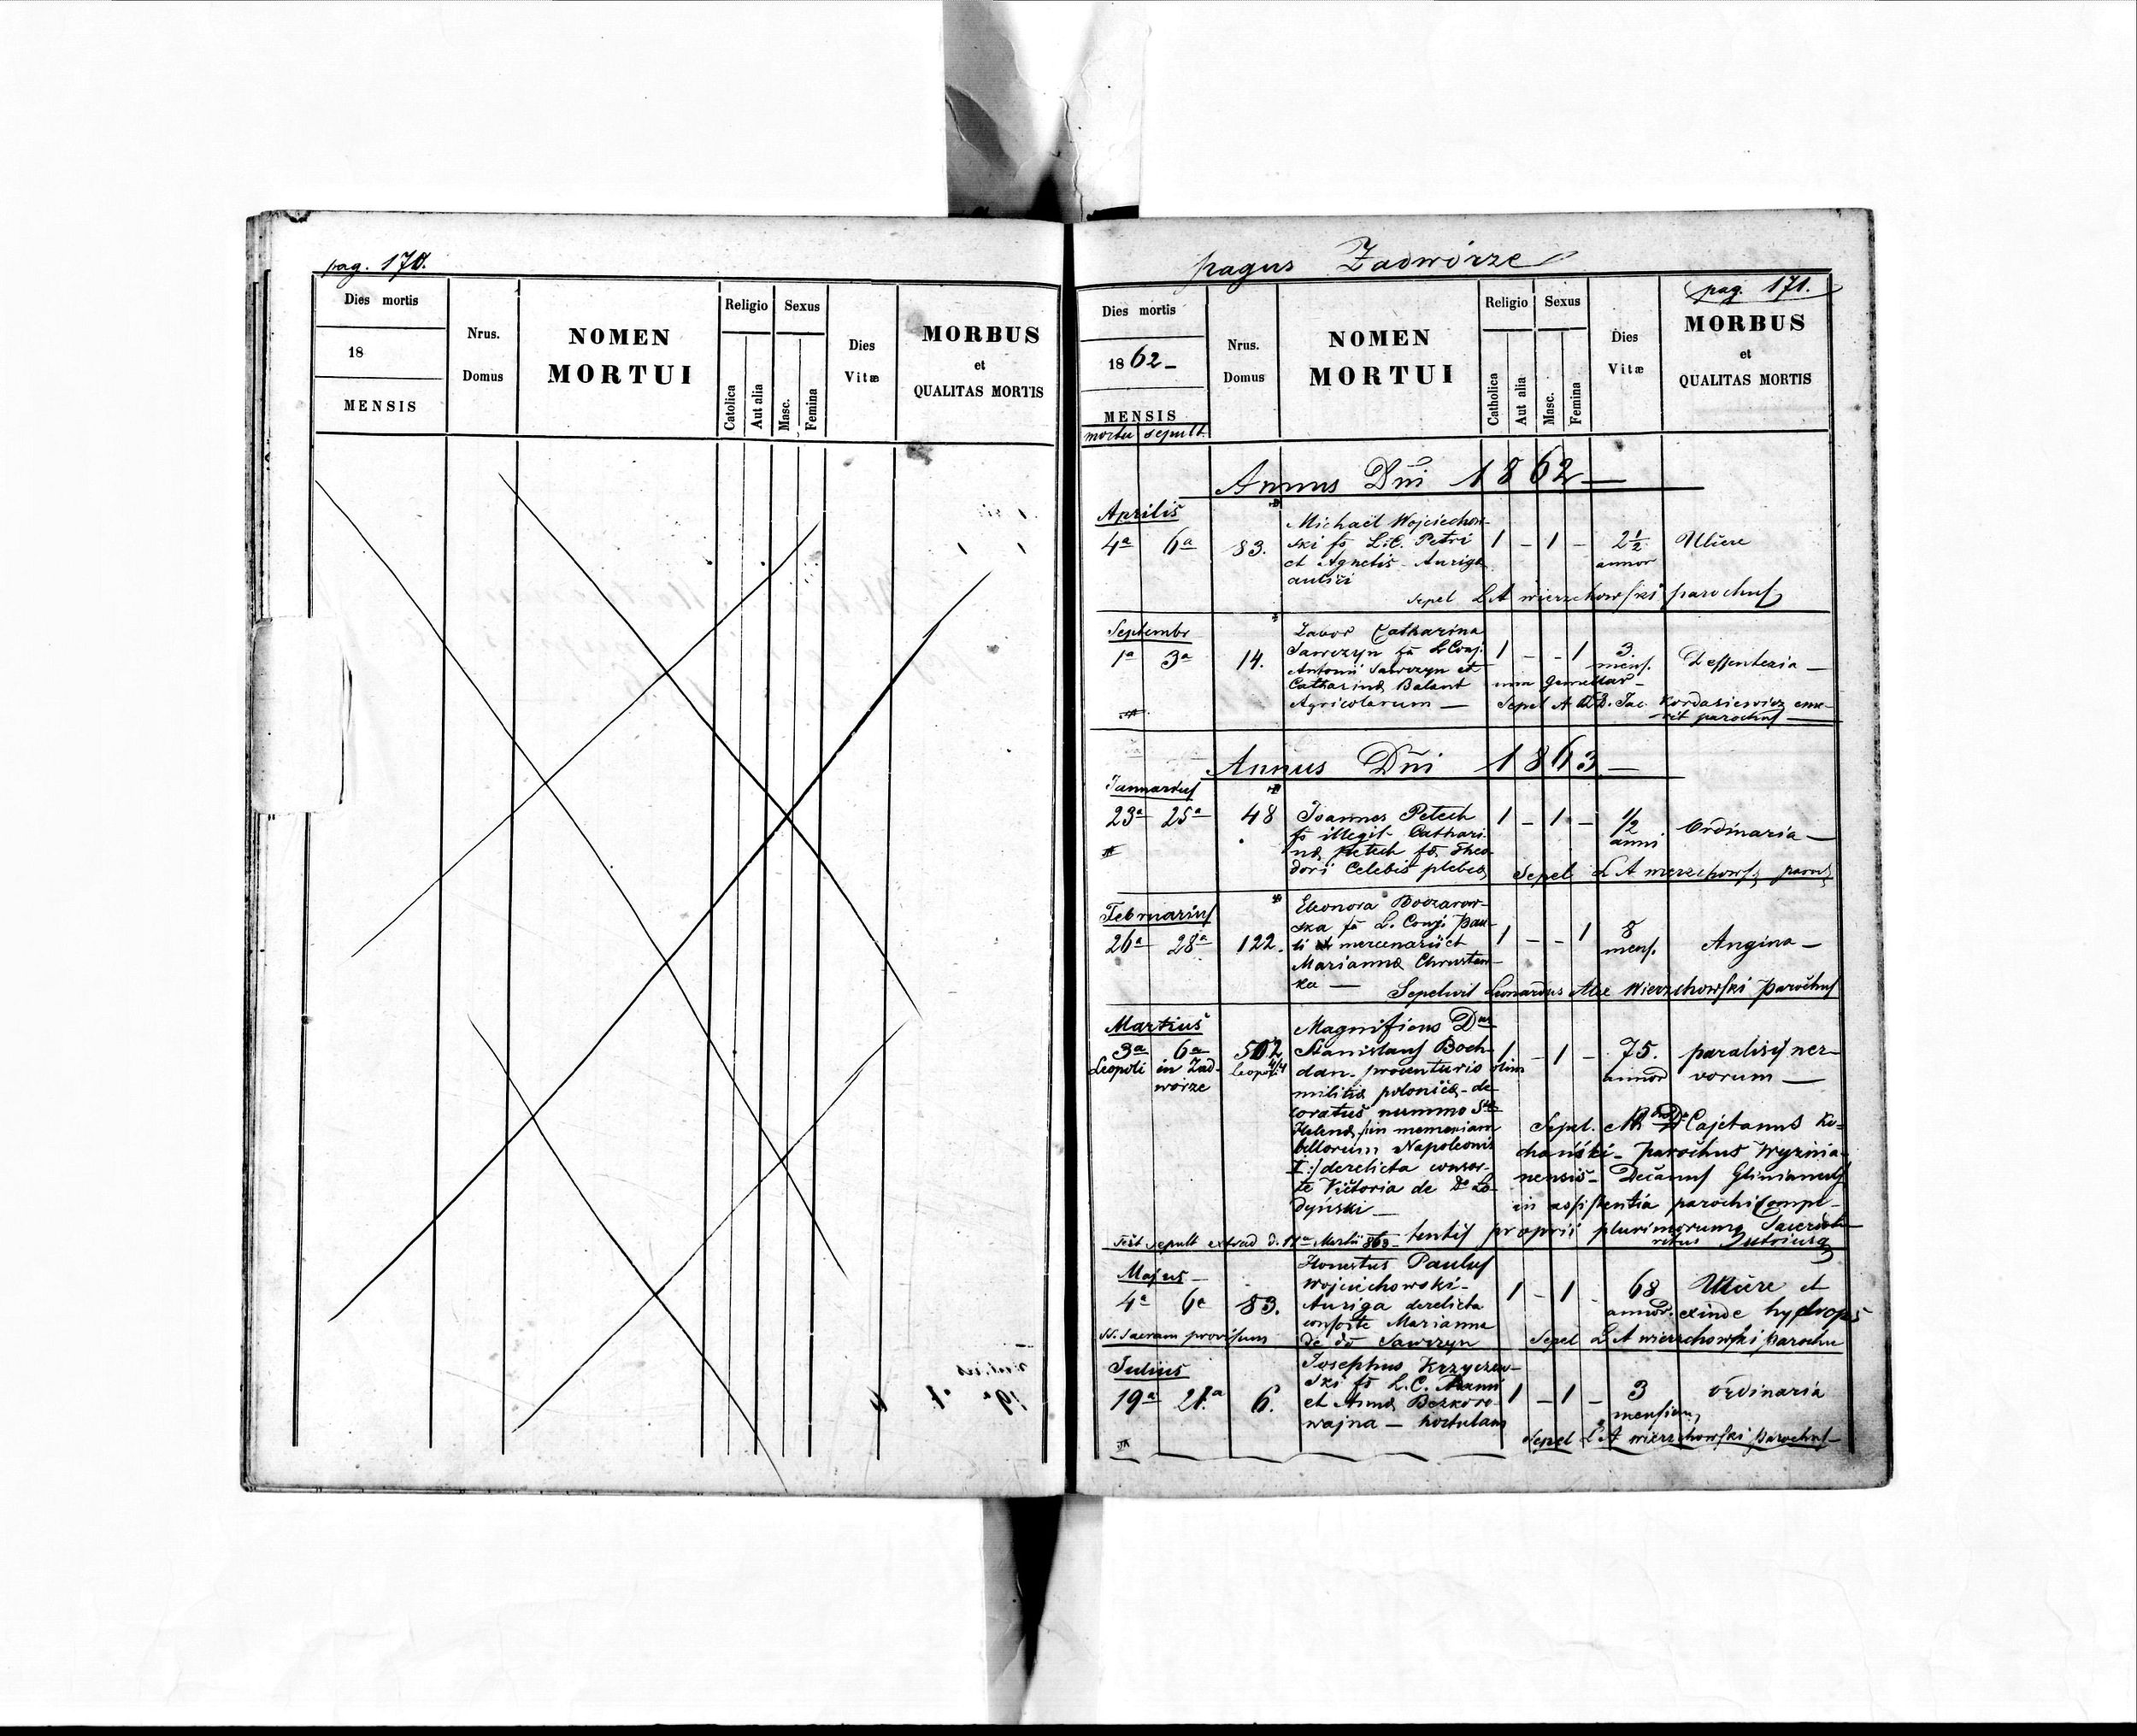 pag. 170.
Dies mortis
18
MENSIS
Nrus.
Domus
NOMEN
MORTUI
Religio
Sexus
Catolica
Aut alia
Masc.
Femina
Dies
Vitæ
MORBUS
et
QUALITAS MORTIS
pagus Zadwórze
pag. 171.
Dies mortis
1862
MENSIS
mortu sepult.
Nrus.
Domus
NOMEN
MORTUI
Religio
Sexus
Catholica
Aut alia
Masc.
Femina
Dies
Vitæ
MORBUS
et
QUALITAS MORTIS
Annus Dñi 1862
Aprilis
4a 6a 83.
Michaël Wojciechow-
ski fs L.C. Petri
et Agnetis Auriga
aulici
1 - 1 - 2½
annor
Ulcere
Sepel LA Wierzchowski parochus
Septembr
1a 3a 14.
Catharina
Sawczyn fa L Conj.
Antonii Sawczyn et
Catharina Balant
Agricolarum
1 - - 1 3.
mens.
Dessenteria
Sepel A Kordasiewicz eme-
rit parochus
Annus Dñi 1863
Januarius
23a 25a 48
Joannes Petech
fs illegit Cathari-
na Petech fa Theo-
dori Celebis plebea
1 - 1 - 1/2
anni
Ordinaria
Sepel L A Wierzchows. paroc
Februarius
26a 28a 122.
Eleonora
ska fa L. Conj Pau-
li mercenarii et
Marianna Chrusten-
ka
1 - - 1 8
mens.
Angina
Sepelivit Leonardus Alex Wierzchowski Parochus
Martius
3a 6a 502 4/4
Leopoli in Zad-
worze
Leopoli
Magnificus Dus
Stanislaus Boch-
dan olim
militia polonica de-
coratus nummo Stæ
Helena in memoriam
bellorum Napoleonis
I :/ derelicta consor-
te Victoria de Do Ło-
dyński
1 - 1 - 75.
annor
paralisis ner-
vorum
Sepel. Cajetanus Ko-
chański Parochus Wyznia-
nensis Decanus Glinianens
in assistentia parochi Compe-
tentis proprii plurimorumq Sacerdot
ritus Utriusq
Test sepult extrad d. 11a Martii 863
Majus
4a 6a 83.
Honestus Paulus
Wojciechowski
Auriga derelicta
consorte Marianna
de do Sawczyn
1 - 1 - 68
annor.
Ulcere et
exinde hydrops
Sepel L A Wierzchowski parochu
Julius
19a 21a 6.
Josephus Krzyczew-
ski fs L.C.
et Anna Bezkoro-
wajna hortulans
1 - 1 - 3
mensium
ordinaria
Sepel L A Wierzchowski Parochus